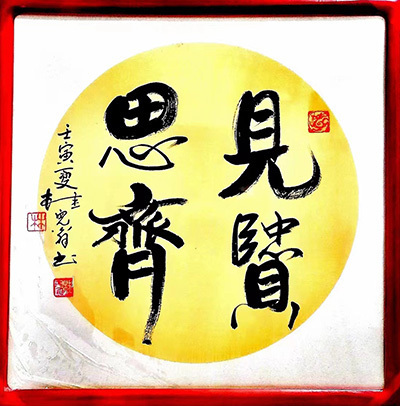 見賢
思齊
壬寅夏